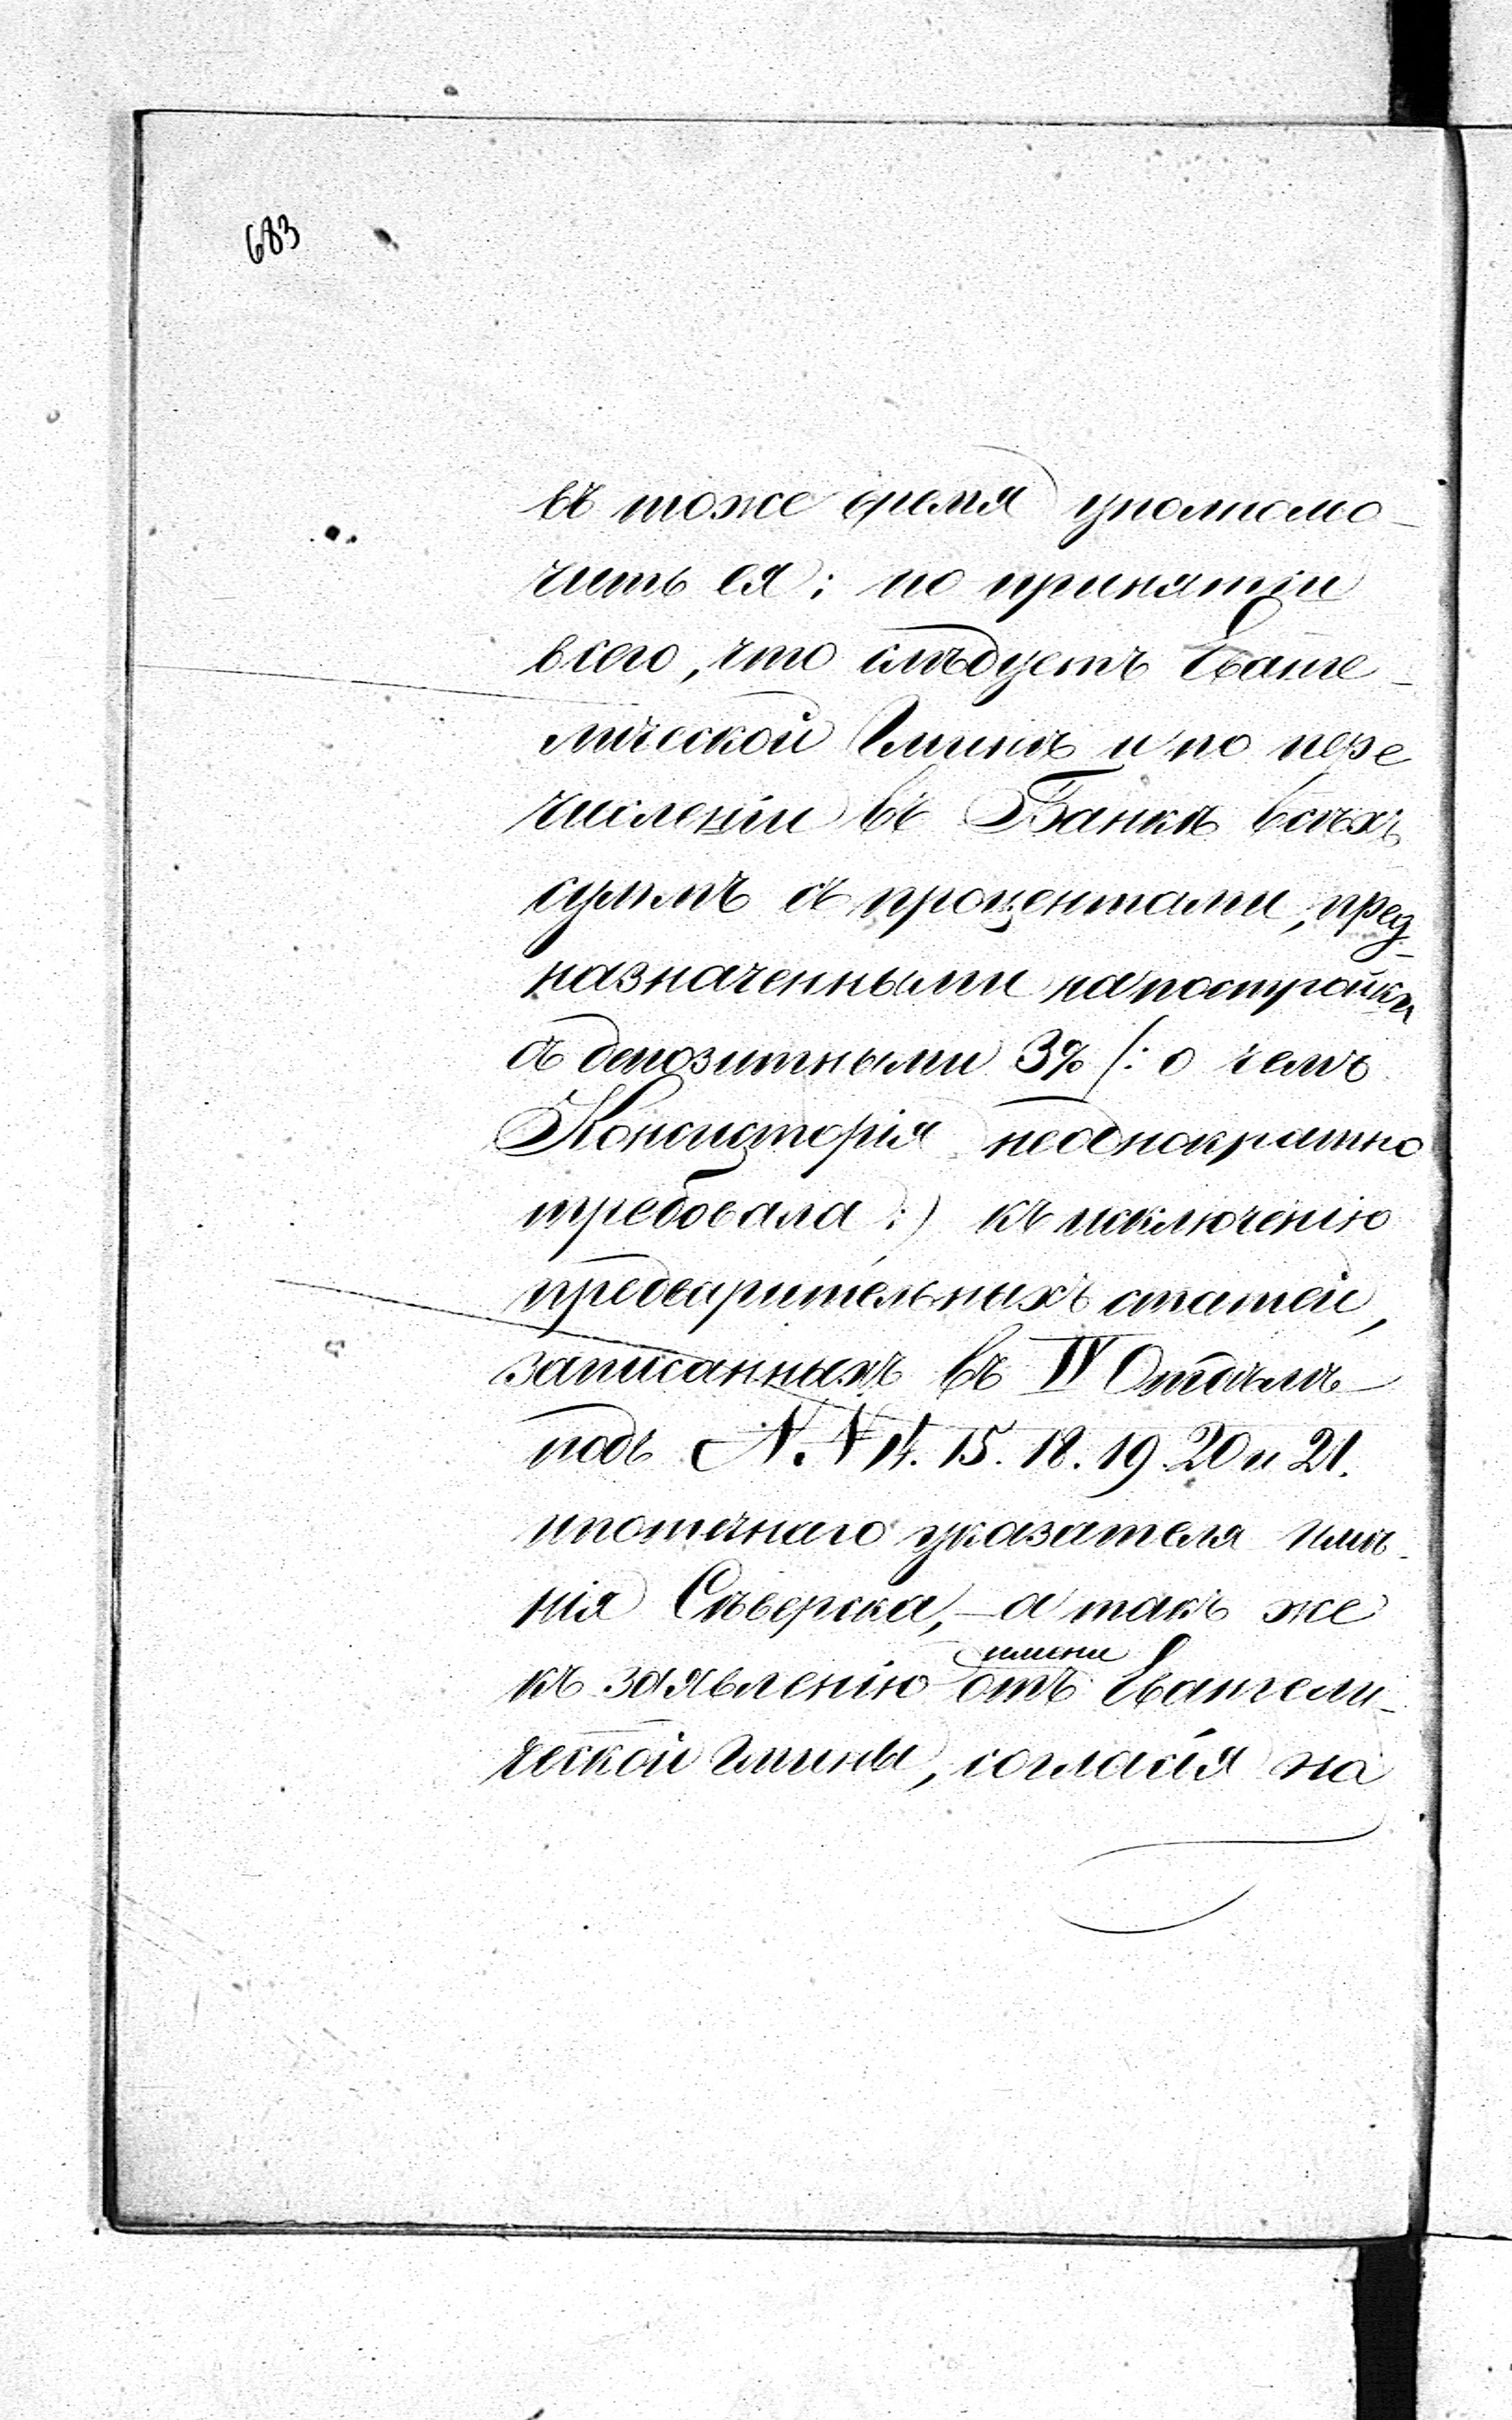 683
въ тоже время уполномо-
чить ея: по принятіи
всего, что слѣдуетъ Еванге-
лической Гминѣ и по пере
численіи въ Банкѣ всѣхъ
суммъ съ процентами, пред-
назначенными на постройки
съ депозитными 3% /: о чемъ
Консисторія неоднократно
требовала :) къ исключенію
предварительныхъ статей,
записанныхъ въ IV Отдѣлѣ
подъ N. N 14. 15. 18. 19. 20 и 21.
ипотечнаго указателя имѣ-
нія Сѣверска, - а такъ же
имени
къ заявленію отъ Евангели-
ческой Гмины, согласія на